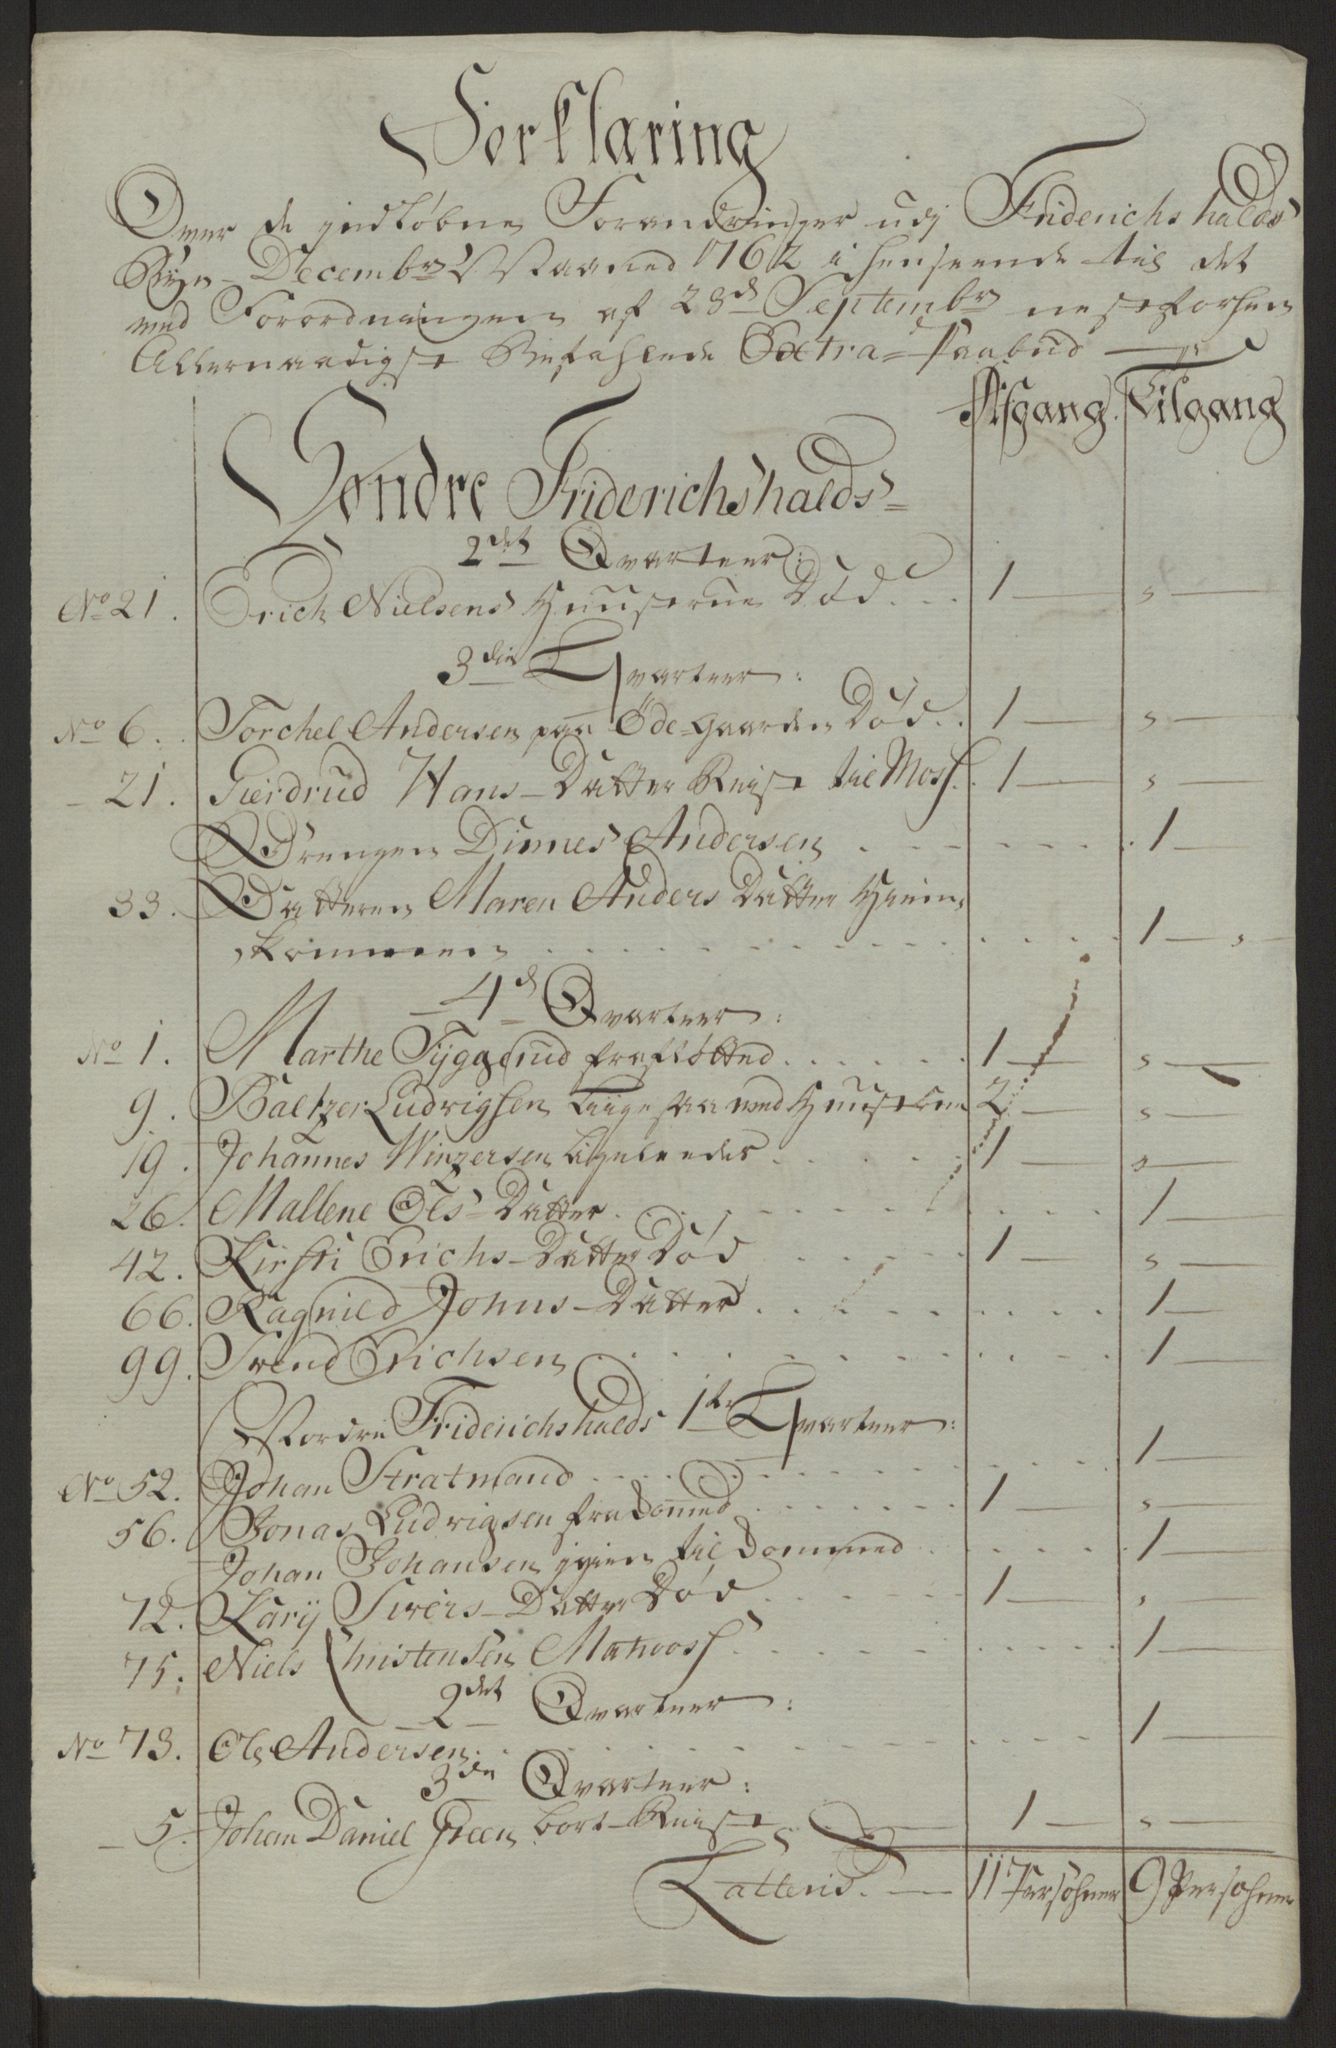 Forklaring
Over de indløbne Forandringer udj Friderichshalds
Bye - Decembr Maaned 1762 i henseende til det
ved Forordningen af 23d Septembr nestforhen
Allernaadigst Befahlede Extra-Paabud
Afgang. Tilgang
Søndre Friderichshalds
2det Qvarteer:
No 21. Erich Nielsens Huustrue Død... 1 — " —
3die Qvarteer:
No 6. Torchel Andersen paa Ødegaarden Død.. 1 — " —
- 21. Gierdrud Hans-Datter Reist til Moss. 1 — " —
Drengen Dinnes Andersen . . . . . . 1 —
33. Datteren Maren Anders Datter Hiem-
kommen . . . . . . . . . 1 — " —
4d Qvarteer:
No 1. Marthe Tyggerud frafløtted . . . . . 1 — " —
9. Baltzer Ludvigsen liigesaa med Huustruen 2 — " —
19. Johannes Winzersen ligeledes . . . . 1 — " —
26. Mallene Ols-Datter . . . . . . . . 1 —
42. Kirsti Erichs-Datter Død . . . . 1 — " —
66. Ragnild Johns-Datter . . . . . . . 1 —
99. Svend Erichsen . . . . . . . . 1 —
Nordre Friderichshalds 1te Qvarteer:
No 52. Johan Stratmand . . . . . . . . 1 —
56. Jonas Ludvigsen fra Domed . . . . . 1 — " —
Johan Johansen igien til Dommed . . . . 1 —
72. Karij Sivers-Datter Død . . . . 1 — " —
75. Niels Christensen Matroos . . . . . . 1 —
2det Qvarteer:
No 73. Ole Andersen . . . . . . . . 1 —
3die Qvarteer:
- 5. Johan Daniel Green bort-Reist . — 1 — " —
Latteris. — 11 Persohner 9 Persohner